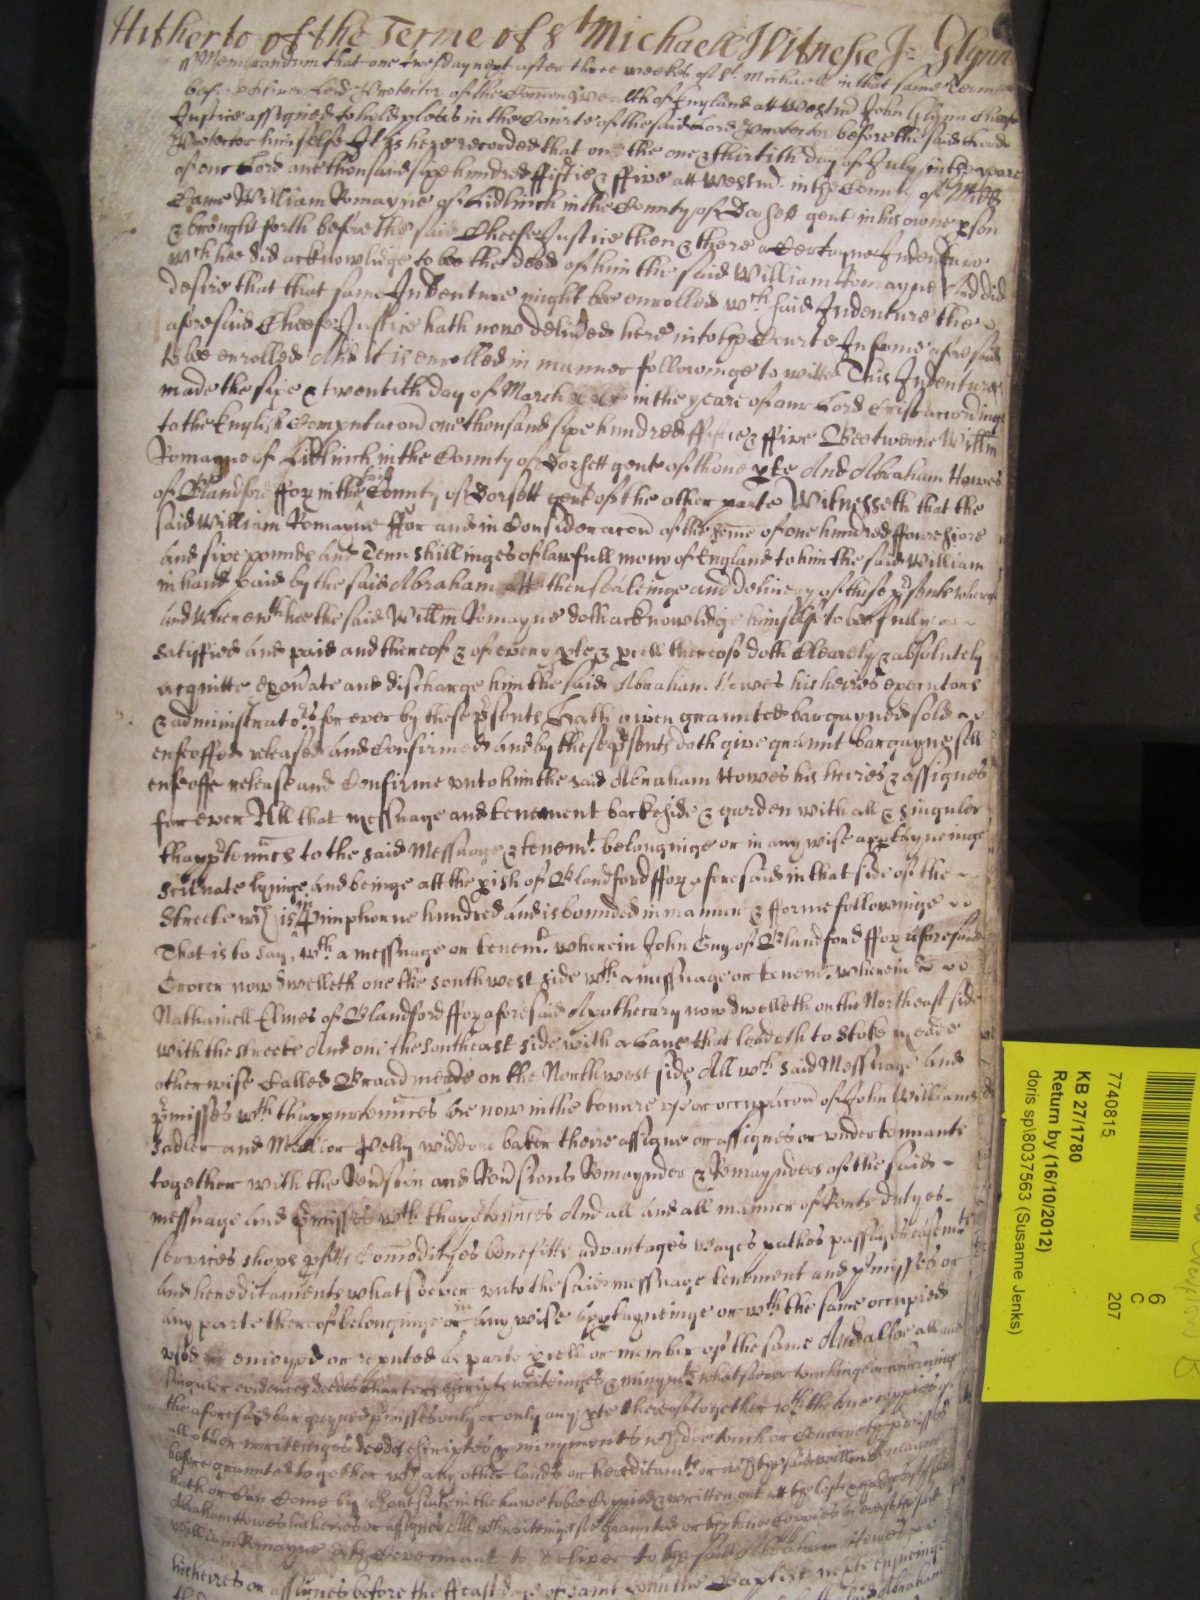 Hitherto of the Terme of St Michaell Witnesse J: Glynn
Memorandum that one Twesday next after three weekes of St Michaell in that same Terme
before Oliver Lord Protector of the Comonwealth of England att Westmr John Glynn Cheife
Justice assigned to hold pleas in the Courte of the said Lord Protector before the said Lord
Protector himselfe It is here recorded that on the one & thirtith day of July in the yeare
of our Lord one thousand sixe hundred ffiftie & ffive att Westmr in the County of Midd
Came William Romayne of Lidlinch in the County of Dorsett gent in his owne pson
& brought forth before the said Cheefe Justice then & there a Certayne Indenture
wch hee did acknowlidge to be the deed of him the said William Romayne And did
desire that that same Indenture might bee enrolled wch said Indenture the
aforesaid Cheefe Justice hath now delived here into the Courte In forme aforesaid
to be enrolled And it is enrolled in manner followinge to witte This Indenture
made the sixe & twentith day of March in the yeare of our Lord Crist accordinge
to the English Computacon one thousand sixe hundred ffiftie & ffive Beetweene Willm
Romayne of Lidlinch in the County of Dorsett gent of thone pte And Abraham Howes
of Blandford fforx in the said County of Dorsett gent of the other parte Witnesseth that the
said William Romayne ffor and in Consideracon of the some of one hundred ffowrescore
and sixe pounds and Tenn shillinges of lawfull mony of England to him the said William
in hand paid by the said Abraham att thensealeinge and delivery of these psents whereof
and wherewth hee the said Willm Romayne doth acknowlidge himselfe to bee fully
satisffied and paid and thereof & of every pte & pcell thereof doth Clearely & absolutely
acquitte exonate and discharge him the said Abraham Howes his heires executors
& administrators for ever by these psents hath given graunted bargayned sold
enfeoffed released and Confirmed and by these psents doth give graunt bargayne sell
enfeoffe release and Confirme unto him the said Abraham Howes his heires & assignes
for ever All that messuage and tenement backeside & garden with all & singuler
thapptenncs to the said Messuage & tenemt belonginge or in any wise apptayneinge
scituate lyinge and beinge att the pish of Blandford fforx aforesaid in that side of the
Streete wch is in Pimphorne hundred and is bounded in manner & forme followinge
That is to say wth a messuage or tenemt wherein John Guy of Blandford fforx aforesaid
Grocer now dwelleth one the southwest side wth a messuage or tenemt wherein
Nathaniell Elmes of Blandford fforx aforesaid Apothecary now dwelleth on the Northeast side
with the streete And one the southeast side with a Lane that leadeth to Stoke meade
otherwise Called Broad meade on the Northwest side All wch said Messuage and
pmisses wth thappurtenncs are now in the tenure use or occupacon of John Williams
Sadler and Mellior Pelly widdow baker theire assigne or assignes or undertennants
together with the Revsion and Revsions Remaynder & Remaynders of the said
messuage and pmisses wth thapptenncs And all and all manner of Rents dutyes
services shops pfitts Comodityes benefitts advantages wayes pathes passages easemts
and hereditaments whatsoever unto the said messuage tenement and pmisses or
any parte thereof belonginge or in any wise apptayneinge or wth the same occupied
used enioyed or reputed as parte pcell or member of the same And alsoe all and
singuler evidences deedes Charters Escripts writeinges & minymts whatsoever touchinge or concerninge
the aforesaid bargayned pmisses only or only any pte thereof together wth the true coppies of
all other writeinges deeds escriptes & minyments wch doe touch or Concerne the pmisses
before graunted together wth any other lands or hereditamts or wch the said Willm Romayne
hath or Can Come by without suite in the Lawe to bee Coppied & written out att the
Abraham Howes his heires or assignes All wch writeings soe graunted or the true Coppies
William Romayne doth Covennant to deliver to the said Abraham Howes
his heires or assignes before the ffeast daye of Saint John the Baptist next ensueinge
7740815
KB 27/1780
Return by (16/10/2012)
doris sp\8037563 (Susanne Jenks)
6
C
207